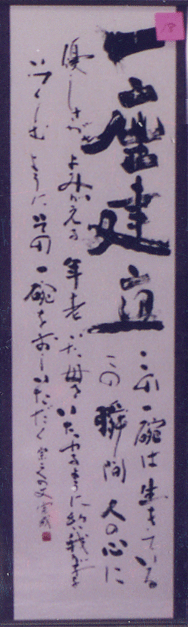 一座建立
この一碗は生きている
この瞬間人の心に
優しさがよみがえる 年老いた母をいたわるように 幼い我が子を
いつくしむように この一碗を おしいただく